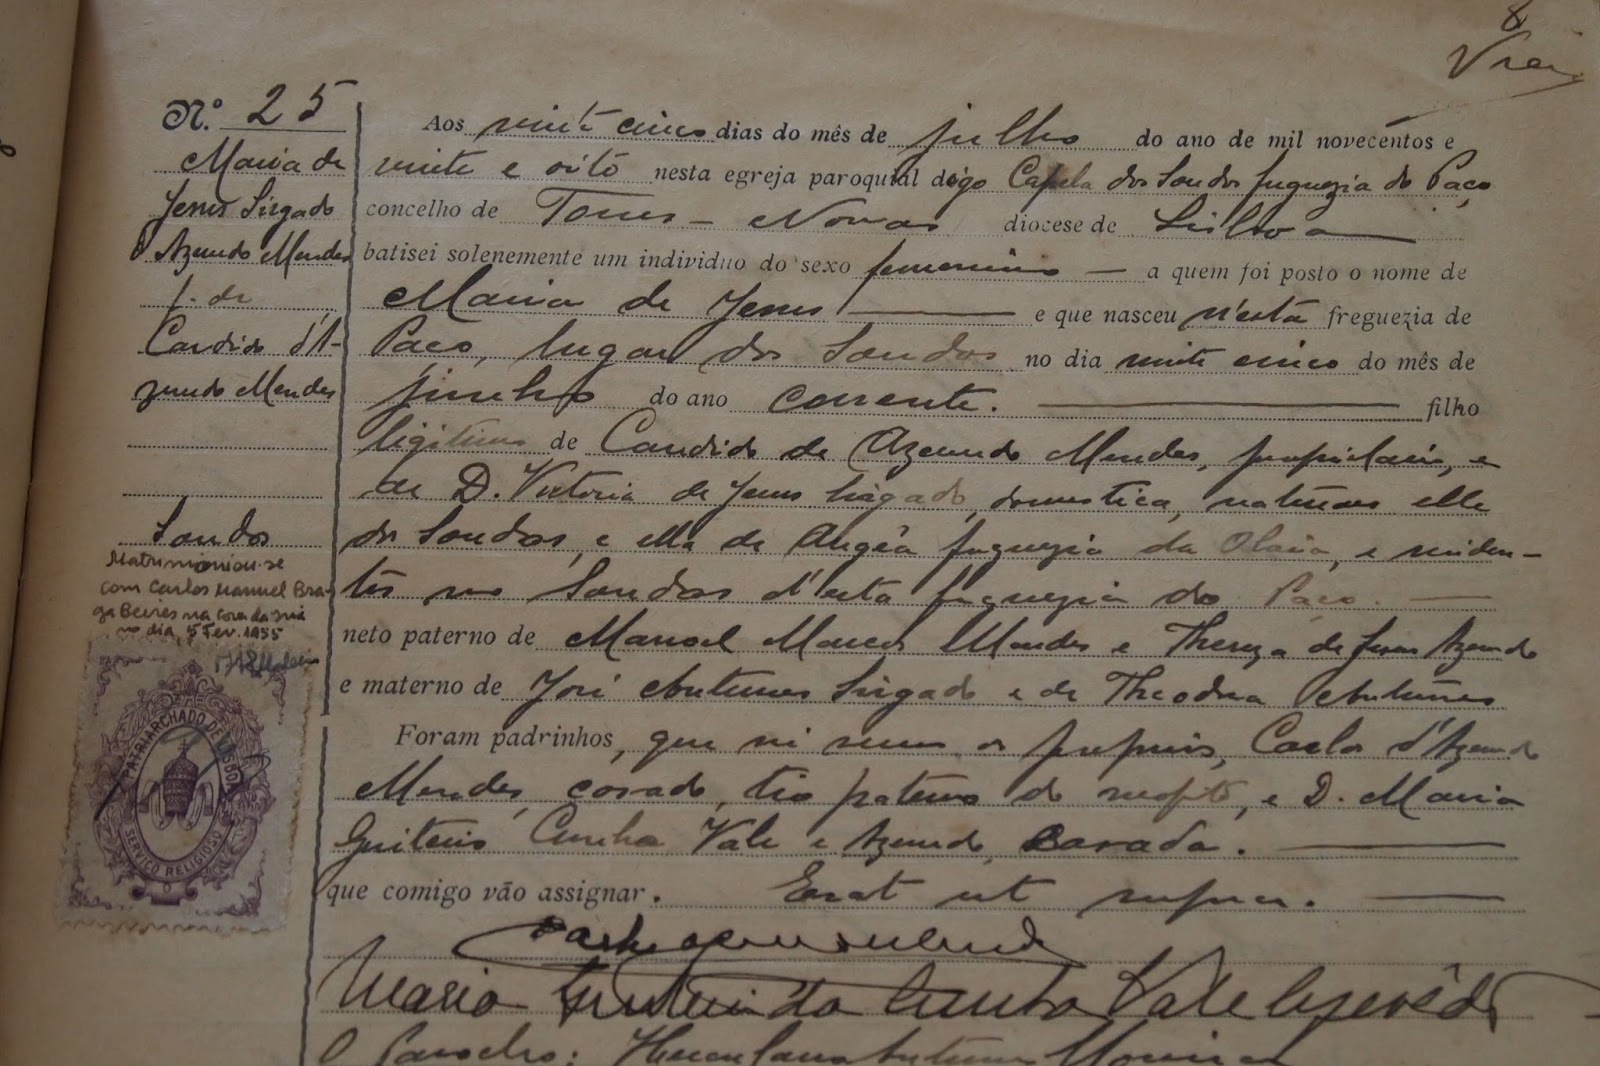 8
N.º 25
Maria de
Jesus Sirgado
d'Azevedo Mendes
f. de
Candido d'A-
zevedo Mendes
Soudos
Matrimoniou-se
com Carlos Manuel Bra-
ga Beires na Cova da Iria
no dia 5 Fev. 1955
PATRIARCHADO DE LISBOA
SERVIÇO RELIGIOSO
Aos vinte cinco dias do mês de julho do ano de mil novecentos e
vinte e oito nesta egreja paroquial digo Capela dos Soudos freguezia do Paço
concelho de Torres-Novas diocese de Lisboa
batisei solenemente um individuo do sexo femenino — a quem foi posto o nome de
Maria de Jesus — e que nasceu n'esta freguezia de
Paço, lugar dos Soudos no dia vinte cinco do mês de
junho do ano corrente. — filho
legitimo de Candido de Azevedo Mendes, proprietario, e
de D. Victoria de Jesus Sirgado, domestica, naturaes elle
dos Soudos, e ella de Argêa freguezia da Olaia, e residen-
tes nos Soudos d'esta freguezia do Paço. —
neto paterno de Manoel Mendes e Thereza de Jesus Azevedo
e materno de José Antunes Sirgado e de Theodora Antunes
Foram padrinhos, que sei serem os proprios, Carlos d'Azevedo
Mendes, casado, tio paterno do neofito, e D. Maria
Cunha Vale e Azevedo, casada. —
que comigo vão assignar. Erat ut supra. —
Carlos Azevedo Mendes
Maria da Cunha Vale Azevêdo
O Parocho: Antunes Moreira